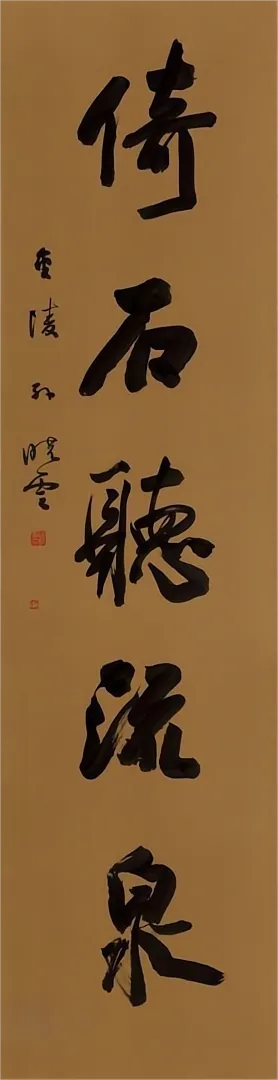 倚石聽流泉
金陵孙晓雲